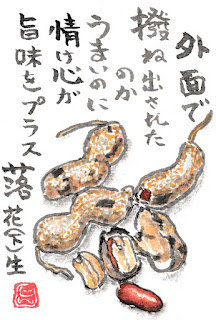 外面で
撥ね出された
のか
うまいのに
情け心が
旨味をプラス
落花(下)生